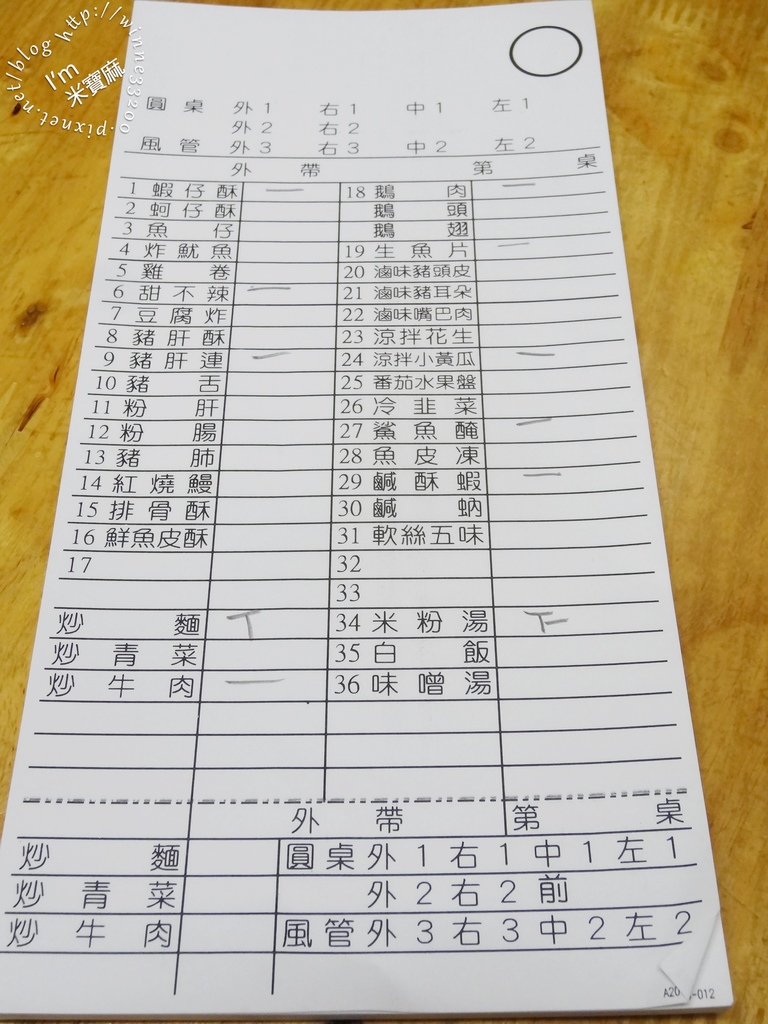 http://winne33200.pixnet.net/blog
I'm
米寶麻
圓桌 外1 右1 中1 左1
外2 右2
風管 外3 右3 中2 左2
外帶 第 桌
1 蝦仔酥 一 18 鵝肉 一
2 蚵仔酥 鵝頭
3 魚仔 鵝翅
4 炸魷魚 19 生魚片 一
5 雞卷 20 滷味豬頭皮
6 甜不辣 一 21 滷味豬耳朵
7 豆腐炸 22 滷味嘴巴肉
8 豬肝酥 23 涼拌花生
9 豬肝連 一 24 涼拌小黃瓜 一
10 豬舌 25 番茄水果盤
11 粉肝 26 冷韭菜
12 粉腸 27 鯊魚醃 一
13 豬肺 28 魚皮凍
14 紅燒鰻 29 鹹酥蝦 一
15 排骨酥 30 鹹蚋
16 鮮魚皮酥 31 軟絲五味
17 32
33
炒麵 丅 34 米粉湯 下
炒青菜 35 白飯
炒牛肉 一 36 味噌湯
外帶 第 桌
炒麵 圓桌外1右1中1左1
炒青菜 外2右2前
炒牛肉 風管外3右3中2左2